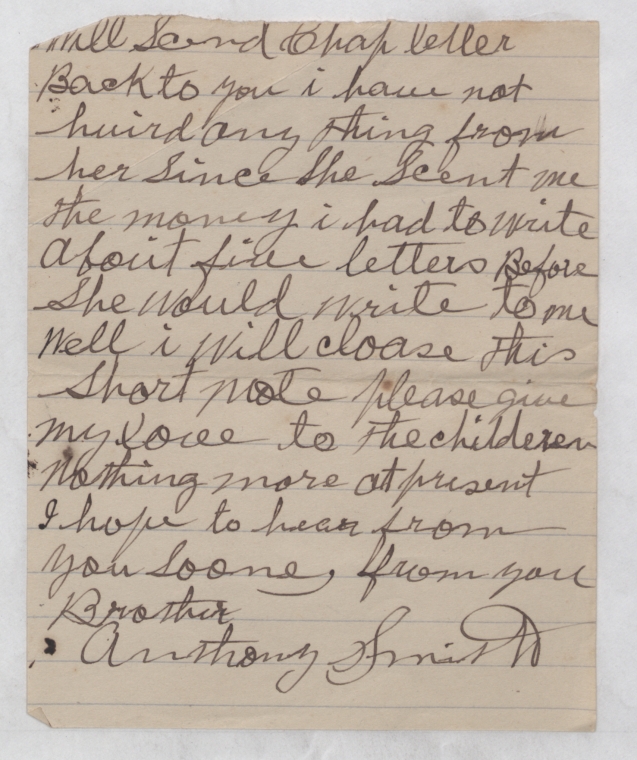 Will Scend Chap letter
Back to you i have not
huird any thing from
her Since She Scent me
the money i had to write
about five letters Before
She would write to me
Well i will cloase this
Short note please give
my love to the childeren
nothing more at present
I hope to hear from
you Soone, from you
Brother
Anthony Smith